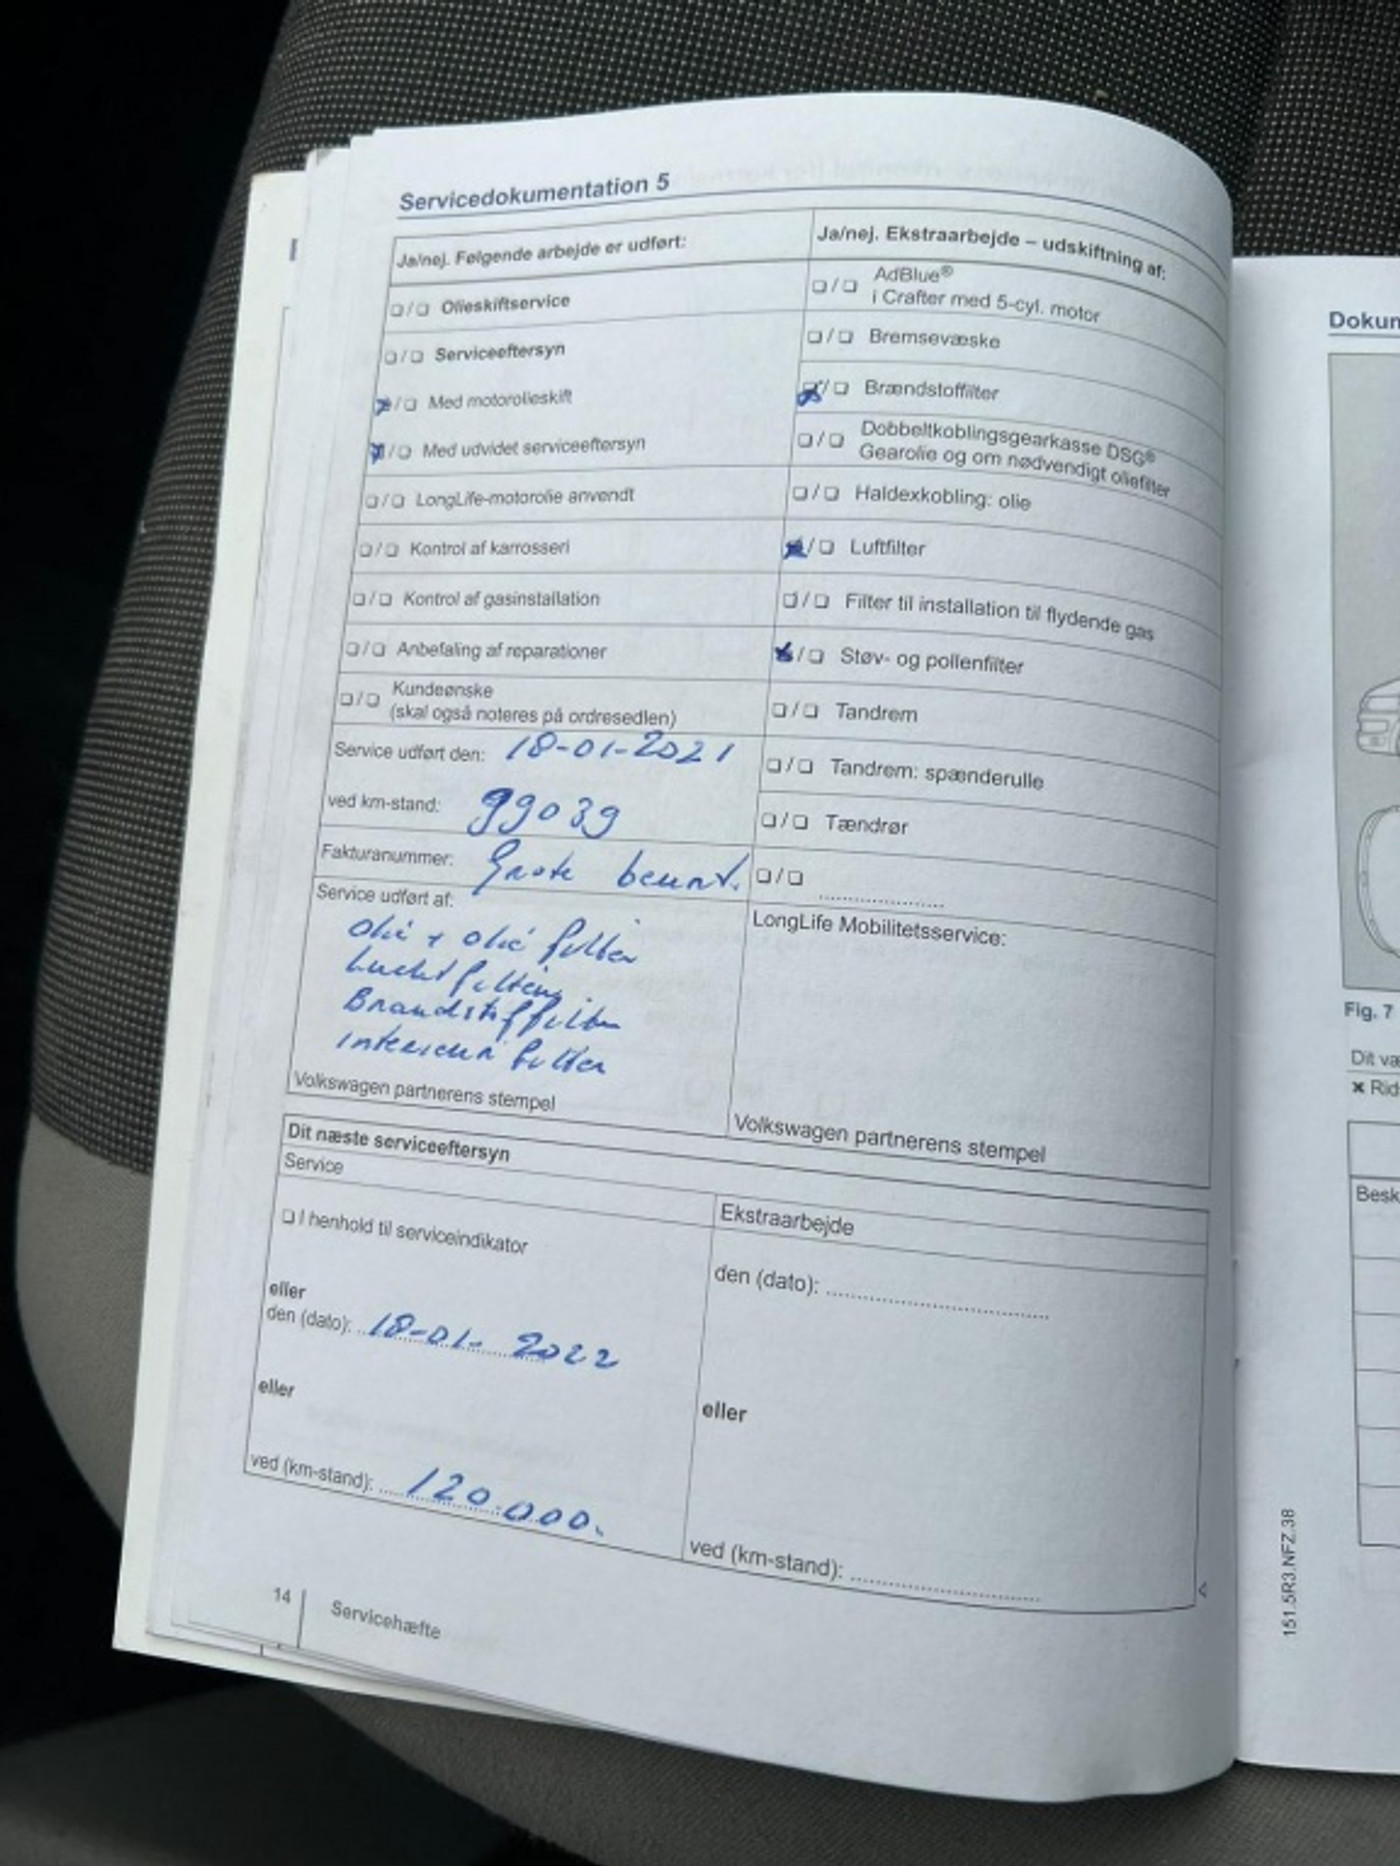 Servicedokumentation 5
Ja/nej. Følgende arbejde er udført:
❏/❏ Olieskiftservice
❏/❏ Serviceeftersyn
❏/❏ Med motorolieskift
❏/❏ Med udvidet serviceeftersyn
❏/❏ LongLife-motorolie anvendt
❏/❏ Kontrol af karrosseri
❏/❏ Kontrol af gasinstallation
❏/❏ Anbefaling af reparationer
❏/❏ Kundeønske
(skal også noteres på ordresedlen)
Service udført den: 18-01-2021
ved km-stand: 99039
Fakturanummer: Grote beurt.
Service udført af:
olie + olie filter
Luchtfilter
Brandstoffilter
interieur filter
Volkswagen partnerens stempel
Ja/nej. Ekstraarbejde – udskiftning af:
❏/❏ AdBlue®
i Crafter med 5-cyl. motor
❏/❏ Bremsevæske
❏/❏ Brændstoffilter
❏/❏ Dobbeltkoblingsgearkasse DSG®
Gearolie og om nødvendigt oliefilter
❏/❏ Haldexkobling: olie
❏/❏ Luftfilter
❏/❏ Filter til installation til flydende gas
❏/❏ Støv- og pollenfilter
❏/❏ Tandrem
❏/❏ Tandrem: spænderulle
❏/❏ Tændrør
❏/❏ ....................
LongLife Mobilitetsservice:
Volkswagen partnerens stempel
Dit næste serviceeftersyn
Service
❏ I henhold til serviceindikator
eller
den (dato): 18-01-2022
eller
ved (km-stand): 120.000.
Ekstraarbejde
den (dato): ....................
eller
ved (km-stand): ....................
14
Servicehæfte
Dokun
Fig. 7
Dit væ
✖ Rid
Besk
151.5R3.NFZ.38